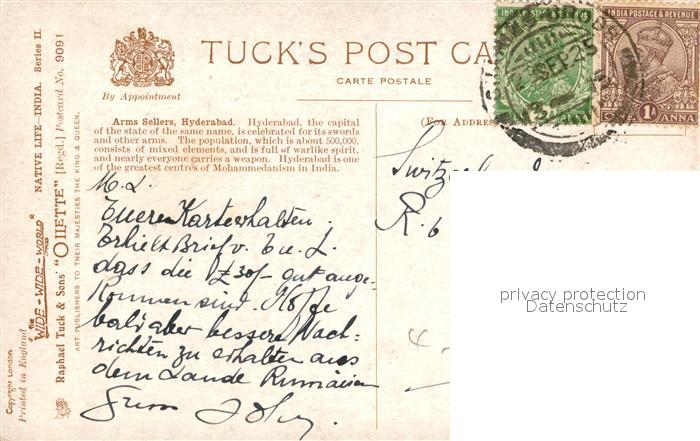 TUCK'S POST CA
CARTE POSTALE
By Appointment
Arms Sellers, Hyderabad. Hyderabad, the capital
of the state of the same name, is celebrated for its swords
and other arms. The population, which is about 500,000,
consists of mixed elements, and is full of warlike spirit,
and nearly everyone carries a weapon. Hyderabad is one
of the greatest centres of Mohammedanism in India.
(For Address
INDIA POSTAGE & REVENUE
1A
ANNA
SEP 25
M. L.
Euere Karte erhalten.
Erhielt Brief v. Eu. L.
dass die £30/- gut ange-
kommen sind. Hoffe
bald aber bessere Nach-
richten zu erhalten aus
dem Lande Rumänien
Gruss
R. 6
privacy protection
Datenschutz
NATIVE LIFE—INDIA. Series II.
"WIDE-WIDE-WORLD"
Raphael Tuck & Sons' "OILETTE" [Regd.] Postcard No. 9091
ART PUBLISHERS TO THEIR MAJESTIES THE KING & QUEEN.
Copyright London
Printed in England